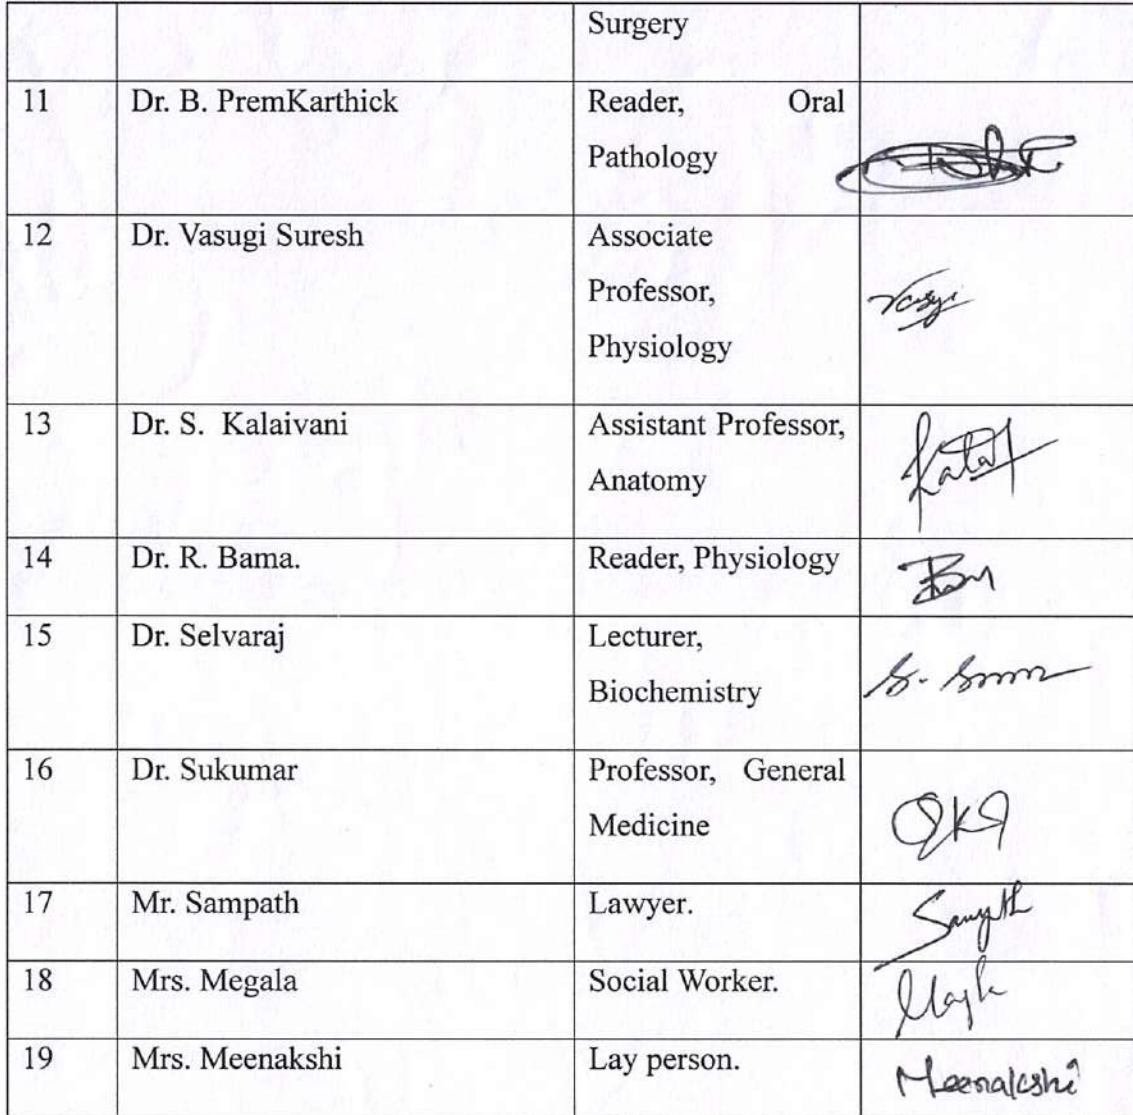 Surgery
11 Dr. B. PremKarthick Reader, Oral
Pathology
12 Dr. Vasugi Suresh Associate
Professor,
Physiology
13 Dr. S. Kalaivani Assistant Professor,
Anatomy
14 Dr. R. Bama. Reader, Physiology
15 Dr. Selvaraj Lecturer,
Biochemistry
16 Dr. Sukumar Professor, General
Medicine
17 Mr. Sampath Lawyer.
18 Mrs. Megala Social Worker.
19 Mrs. Meenakshi Lay person.
Meenakshi